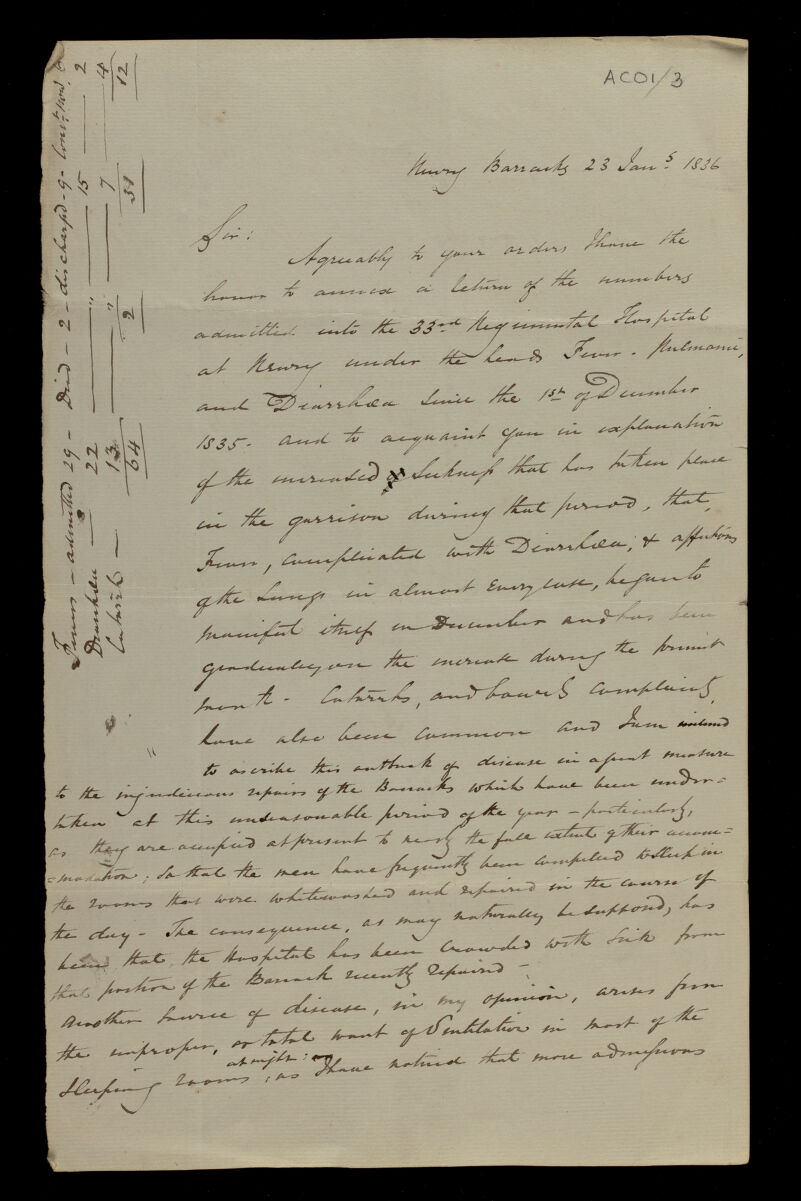 AC01/3
Newry Barracks 23 Jany. 1836
Sir:
Agreeably to your orders I have the
honor to annex a return of the numbers
admitted into the 33rd Regimental Hospital
at Newry under the heads Fever - Pulmonic,
and Diarrhœa since the 1st of December
1835 - and to acquaint you in explanation
of the increased sickness that has taken place
in the garrison during that period, that,
Fever, complicated with Diarrhœa; & affections
of the Lungs in almost every case, began to
manifest itself in December and has been
gradually on the increase during the present
month - Catarrhs, and bowel complaints,
have also been common and I am inclined
to ascribe this outbreak of disease in a great measure
to the injudicious repairs of the Barracks which have been under=
taken at this unseasonable period of the year - particularly,
as they are occupied at present to nearly the full extent of their accom=
=modation; so that the men have frequently been compelled to sleep in
the rooms that were whitewashed and repaired in the course of
the day - The consequence, as may naturally be supposed, has
been that the Hospital has been crowded with sick from
that portion of the Barrack recently repaired -
Another source of disease, in my opinion, arises from
the improper, or total want of Ventilation in most of the
at night:
sleeping rooms; as I have noticed that more admissions
Fevers - admitted 29 - Died - 2 - discharged - 9 - 6
Diarrhœa — 22 — " — 15 — 2
Catarrh — 13 — " — 7 — 4
64 2 31 12